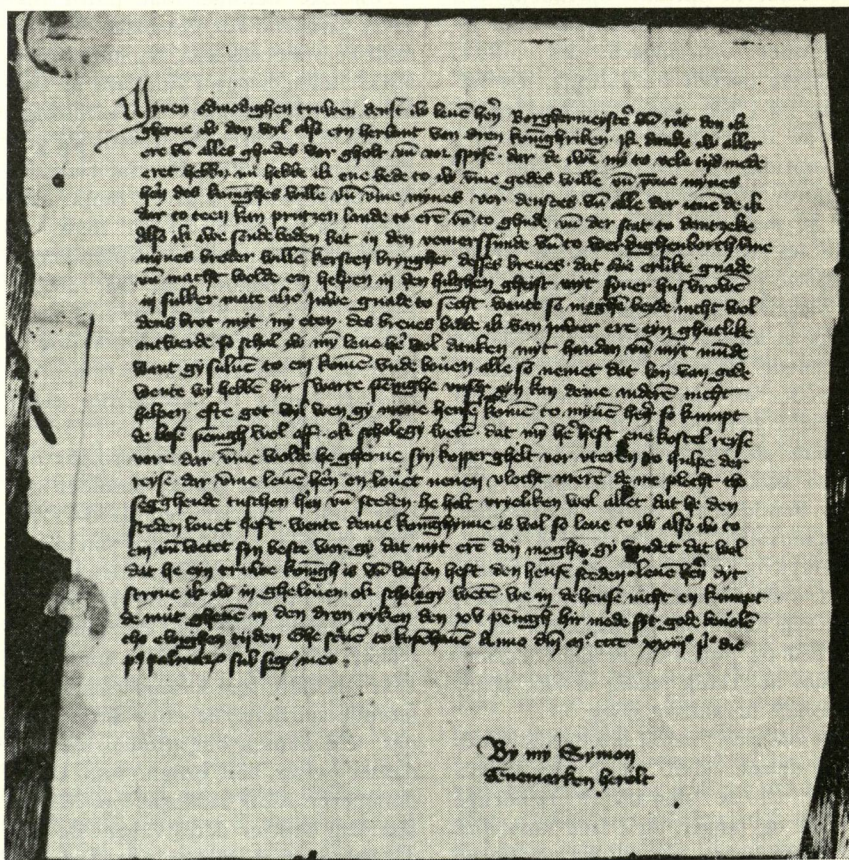 Mynen odmodighen truwen denst iw leuē hē̄n Borghermeyster vn̄ rāt von ik
gherne iw don wyl also eyn herlant van dren konīghriken · Ik danke iw aller
ere vn̄ alles ghudes vor gholt vn̄ vor spise · dar de iwe my to vele tyd mede
eret hebbn̄ · nu hebbe ik ene bede to iw vm̄e godes wille vn̄ vm̄e mynes
hē̄n des konīghes wille vn̄ vm̄e mynes vor denstes vn̄ alle dar iene de ik
dar to teen kan prutzen lande to erē vn̄ to ghude vn̄ der stat to dantzeke
Also ik iwe sende boden bat in den vemerssunde vn̄ to werdighenborch vm̄e
mynes broder wille kersten kryngher desses breues · dat iwe erlike gnade
vn̄ macht wolde em helpen in den hilghen gheist myt syner husvrowen
in sulker mate also iuwe gnade to secht · wente se moghē beyde nicht wol
dens brot myt my eten · des breues bidde ik van iuwer ere eyn ghutlike
antwerde so schal iw my leue hē̄ wol danken myt handen vn̄ myt mūde
want gy suluē to em komē vnde bouen alle so nemet dat lon van gode
wente wy hebben hir swarte penīghe gyn kan deme anderē nicht
helpen efte got wyl wen gy mene hense komē to mynē hē̄n so kumpt
de bose penīgh wol aff · ok schole gy wetē · dat my hē̄ heft ene kostel reyse
vore dar vm̄e wolde he gherne syn kopperghelt vor vteren to hulpe der
reyse · dar vm̄e leuē hē̄n en louet nenen vlocht merē de me plecht tho
segghende tuschen hē̄n vn̄ steden · he holt vryeliken wol allet dat he den
steden louet heft · wente deme konīghynne is wol so leue to iw also iw to
em vn̄ wetet syn beste vor · gy dat myt erē don moghen gy vindet dat wol
dat he eyn truwe konīgh is vn̄ wesen heft den hense steden · leuē hē̄n dyt
scryue ik iw in ghelouen · ok schole gy wetē we in de hense nicht en kumpt
de mūt gheuē in den dren ryken den xv penīgh hir mede syt gode beuolē
tho ewyghen tijden Ghe screuē to kopēhauē Anno dn̄i mº cccc xxiii die
palmarꝫ sub sigº meo ·
By my Symon
denemarken herolt